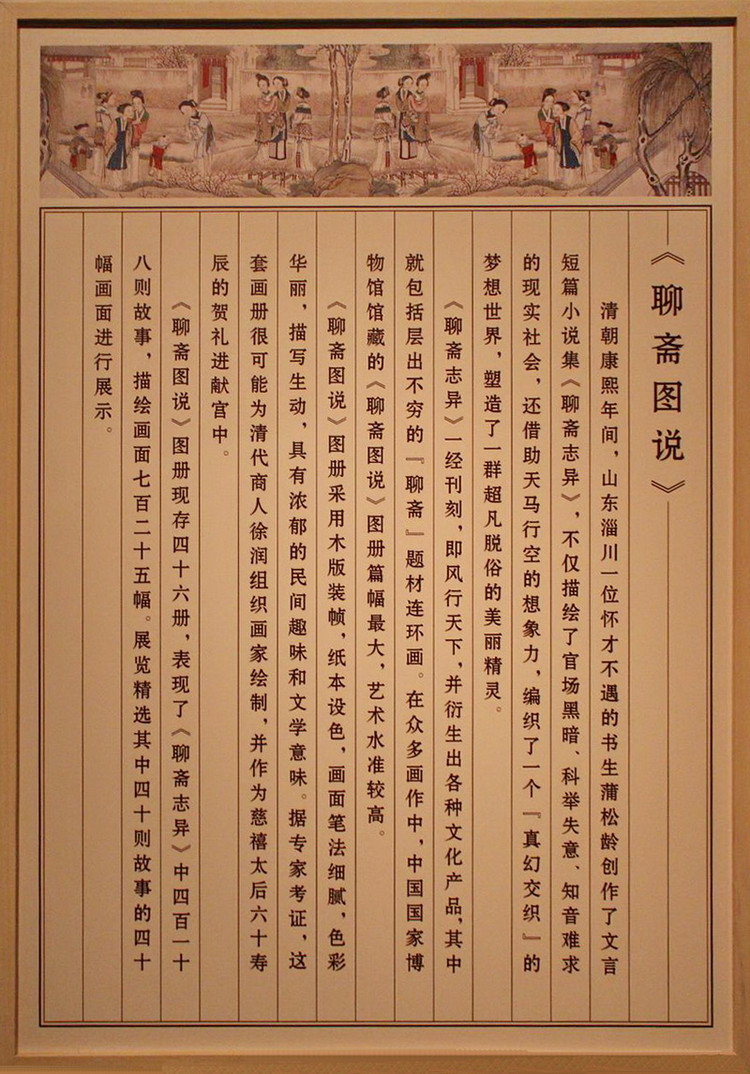 《聊斋图说》
清朝康熙年间，山东淄川一位怀才不遇的书生蒲松龄创作了文言
短篇小说集《聊斋志异》，不仅描绘了官场黑暗、科举失意、知音难求
的现实社会，还借助天马行空的想象力，编织了一个『真幻交织』的
梦想世界，塑造了一群超凡脱俗的美丽精灵。
《聊斋志异》一经刊刻，即风行天下，并衍生出各种文化产品，其中
就包括层出不穷的『聊斋』题材连环画。在众多画作中，中国国家博
物馆馆藏的《聊斋图说》图册篇幅最大，艺术水准较高。
《聊斋图说》图册采用木版装帧，纸本设色，画面笔法细腻，色彩
华丽，描写生动，具有浓郁的民间趣味和文学意味。据专家考证，这
套画册很可能为清代商人徐润组织画家绘制，并作为慈禧太后六十寿
辰的贺礼进献宫中。
《聊斋图说》图册现存四十六册，表现了《聊斋志异》中四百一十
八则故事，描绘画面七百二十五幅。展览精选其中四十则故事的四十
幅画面进行展示。